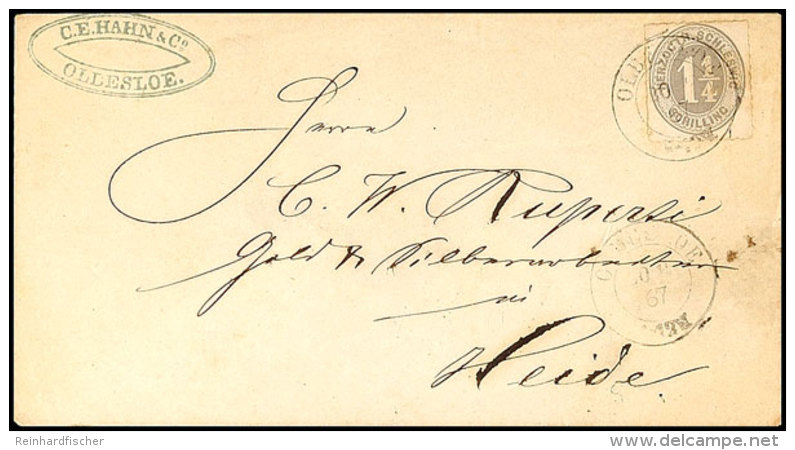 C.E. HAHN & Cº
OLDESLOE.
HERZOGTH. SCHLESWIG
1¼
SCHILLING
Herrn
C. W. Ruperti
Gold & Silberarbeiter
in
Heide.
67
Reinhardfischer
delcampe.net